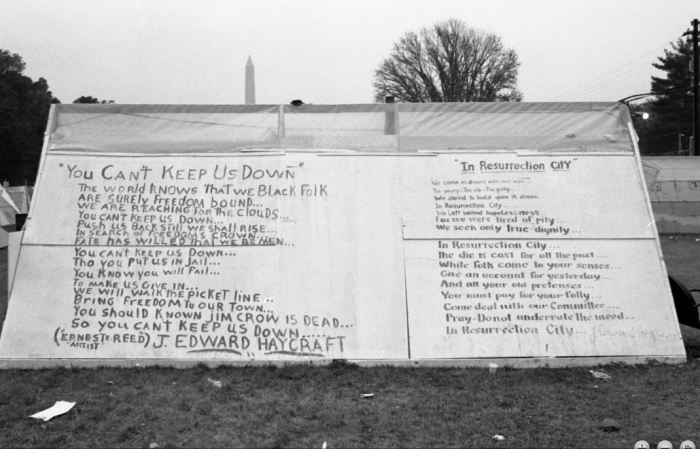 "YOU CAN'T KEEP US DOWN"
THE WORLD KNOWS THAT WE BLACK FOLK
ARE SURELY FREEDOM BOUND...
WE ARE REACHING FOR THE CLOUDS...
YOU CAN'T KEEP US DOWN...
PUSH US BACK STILL WE SHALL RISE...
IN SEARCH OF FREEDOMS CROWN...
FATE HAS WILLED THAT WE BE MEN...
YOU CAN'T KEEP US DOWN...
THO YOU PUT US IN JAIL...
YOU KNOW YOU WILL FAIL...
TO MAKE US GIVE IN...
WE WILL WALK THE PICKET LINE...
BRING FREEDOM TO OUR TOWN...
YOU SHOULD KNOWN JIM CROW IS DEAD...
SO YOU CAN'T KEEP US DOWN......
(ERNESTE REED) J. EDWARD HAYCRAFT
ARTIST
"In Resurrection City"
We come in droves with
The young-The old-The
We dared to build upon A dream
In Resurrection City...
We Left behind hopelessness
For we were tired of pity...
We seek only true dignity
In Resurrection City...
The die is cast for all the past...
White folk come to your senses...
Give an account for yesterday...
And all your old pretenses...
You must pay for your folly...
Come deal with our Committee...
Pray-Donot underrate the mood...
In Resurrection City...